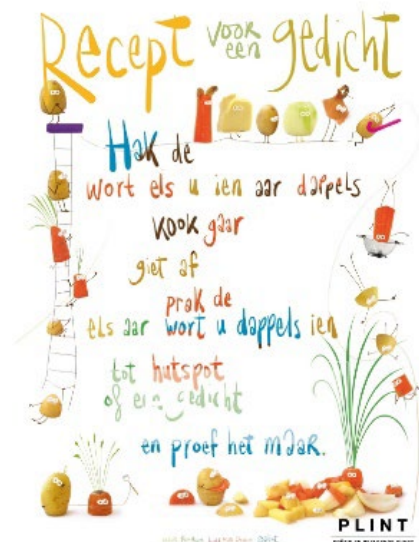 Recept voor een gedicht
Hak de
wort els u ien aar dappels
kook gaar
giet af
prak de
els aar wort u dappels ien
tot hutspot
of een gedicht
en proef het maar.
PLINT